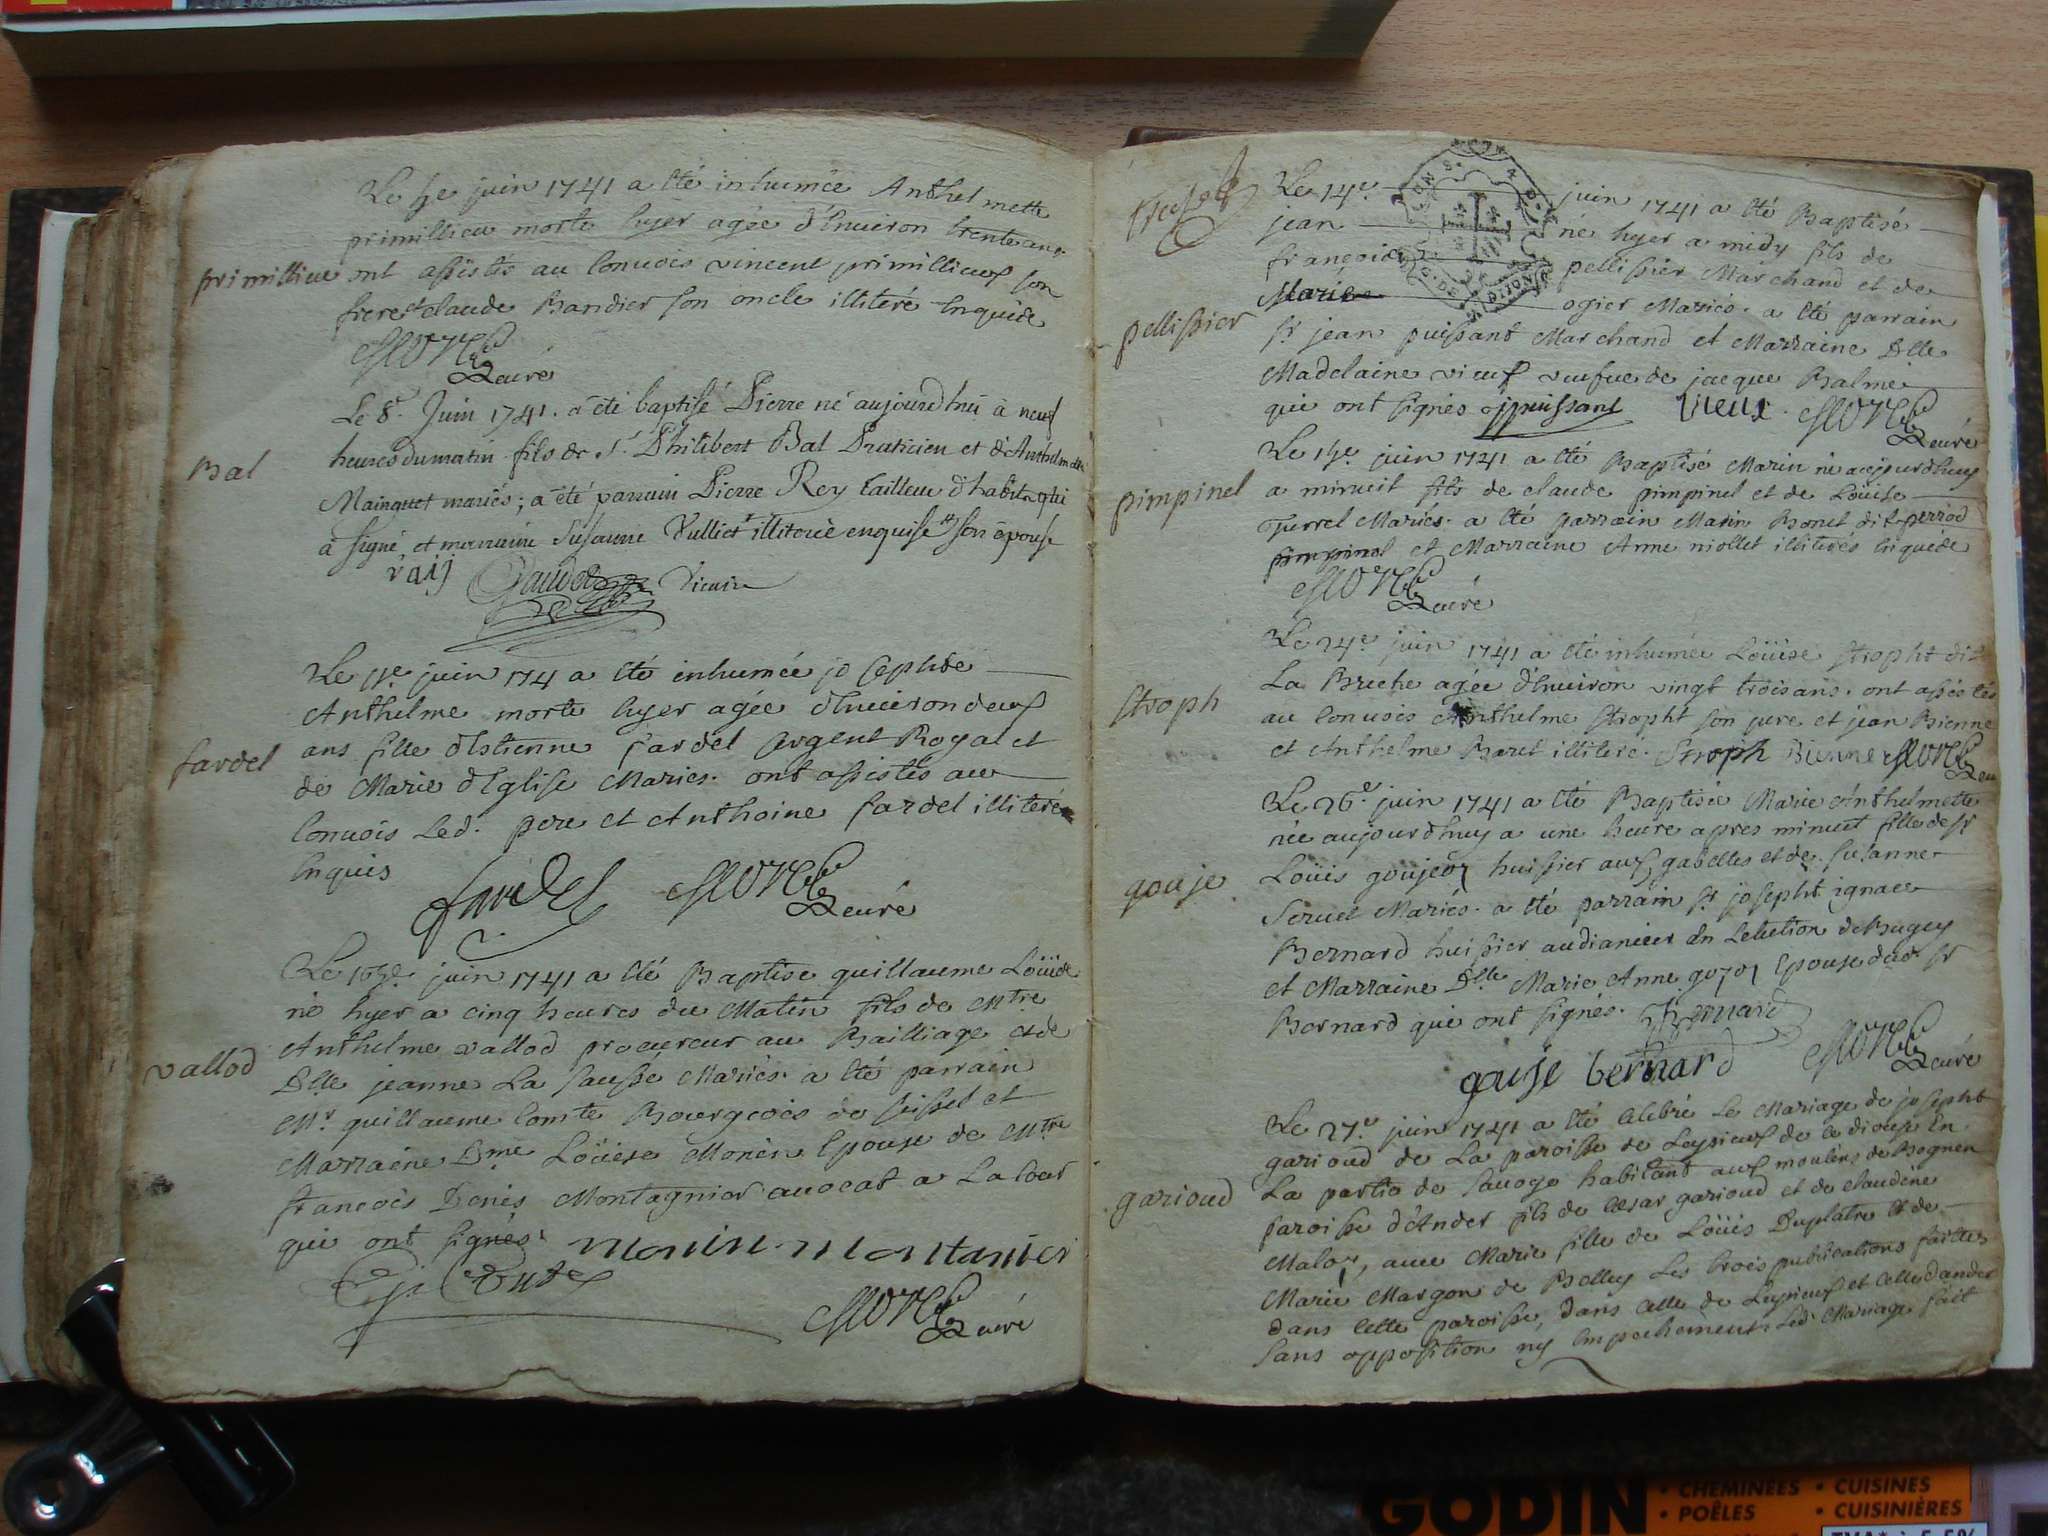 Le 5e juin 1741 a été inhumée Anthelmette
primillieu morte hyer agée d'Enuiron trente ans
primillieu
ont assistés au Conuois vincent primillieux son
frere et claude Bandier son oncle illiteré Enquide
Curé
Le 8e. Juin 1741. a été baptisé Pierre né aujourdhui à neuf
Bal
heures du matin fils de Sr Philibert Bal Praticien et d'Anthelmette
Mainguet mariés; a été parrain Pierre Rey tailleur d'habits qui
à signé et marraine Susanne Vulliet illiterée enquise son épouse
Vicaire
Le 11e juin 1741 a été inhumée josephde
Anthelme morte hyer agée d'Enuiron deux
fardel
ans fille d'Estienne fardel sergent Royal et
de Marie d'Eglise Mariés. ont assistés au
Conuois Led. pere et Anthoine fardel illiteré
Enquis
fardel
Curé
Le juin 1741 a été Baptise guillaume Loüis
né hyer a cinq heures du Matin fils de Mtre
vallod
Anthelme vallod procureur au Bailliage et de
Dlle jeanne La sausse Mariés. a été parrain
Mr. guillaume Comte Bourgeois de seissel et
Marraine Dme Loüise Monin Epouse de Mtre
françois Denis Montagnier auocat a La Cour
qui ont signés. monin montanier
Curé
Le 14e. juin 1741 a été Baptisé
jean né hyer a midy fils de
françois pellissier Marchand et de
Marie ogier Mariés. a été parrain
pellissier
sr jean puissant Marchand et Marraine Dlle
Madelaine vieux veufue de jacque Balme
qui ont signés jpuissant vieux
Curé
Le 15e juin 1741 a été Baptisé Marin né aujourdhuy
pimpinel
a minuit fils de claude pimpinel et de Loüise
Turrel Mariés. a été parrain Marin Bonet dit perrod
pimpinel et Marraine Anne niollet illiterés Enquide
Curé
Le 24e juin 1741 a été inhumée Loüise stropht dit
stroph
La Briche agée d'Enuiron vingt trois ans. ont assistés
au Conuois Anthelme stropht son pere et jean Bienne
et Anthelme Baret illiteré. Stroph Bienne
Le 26e juin 1741 a été Baptisée Marie Anthelmette
née aujourdhuy a une heure apres minuit fille de sr
gouje
Loüis goujeon huissier aux gabelles et de susanne
Seruet Mariés. a été parrain sr josepht ignace
Bernard huissier audiancier en Lelection de Bugey
et Marraine Dlle Marie Anne goyon Epouse dud. sr
Bernard qui ont signés. Bernard
gouje bernard
Curé
Le 27e juin 1741 a été Celebré Le Mariage de josepht
garioud de La paroisse de Leysieux de ce diocese En
garioud
La partie de sauoye habitant aux moulins de Bognen
paroisse d'Ander fils de Cesar garioud et de claudine
Malon, auec Marie fille de Loüis Duplatre et de
Marie Margon de Belley Les trois publications faittes
dans Cette paroisse, dans Celle de Leysieux et Celle dander
sans opposition ny Empechement Led. Mariage fait
GODIN
• CHEMINÉES • CUISINES
• POÊLES • CUISINIÈRES